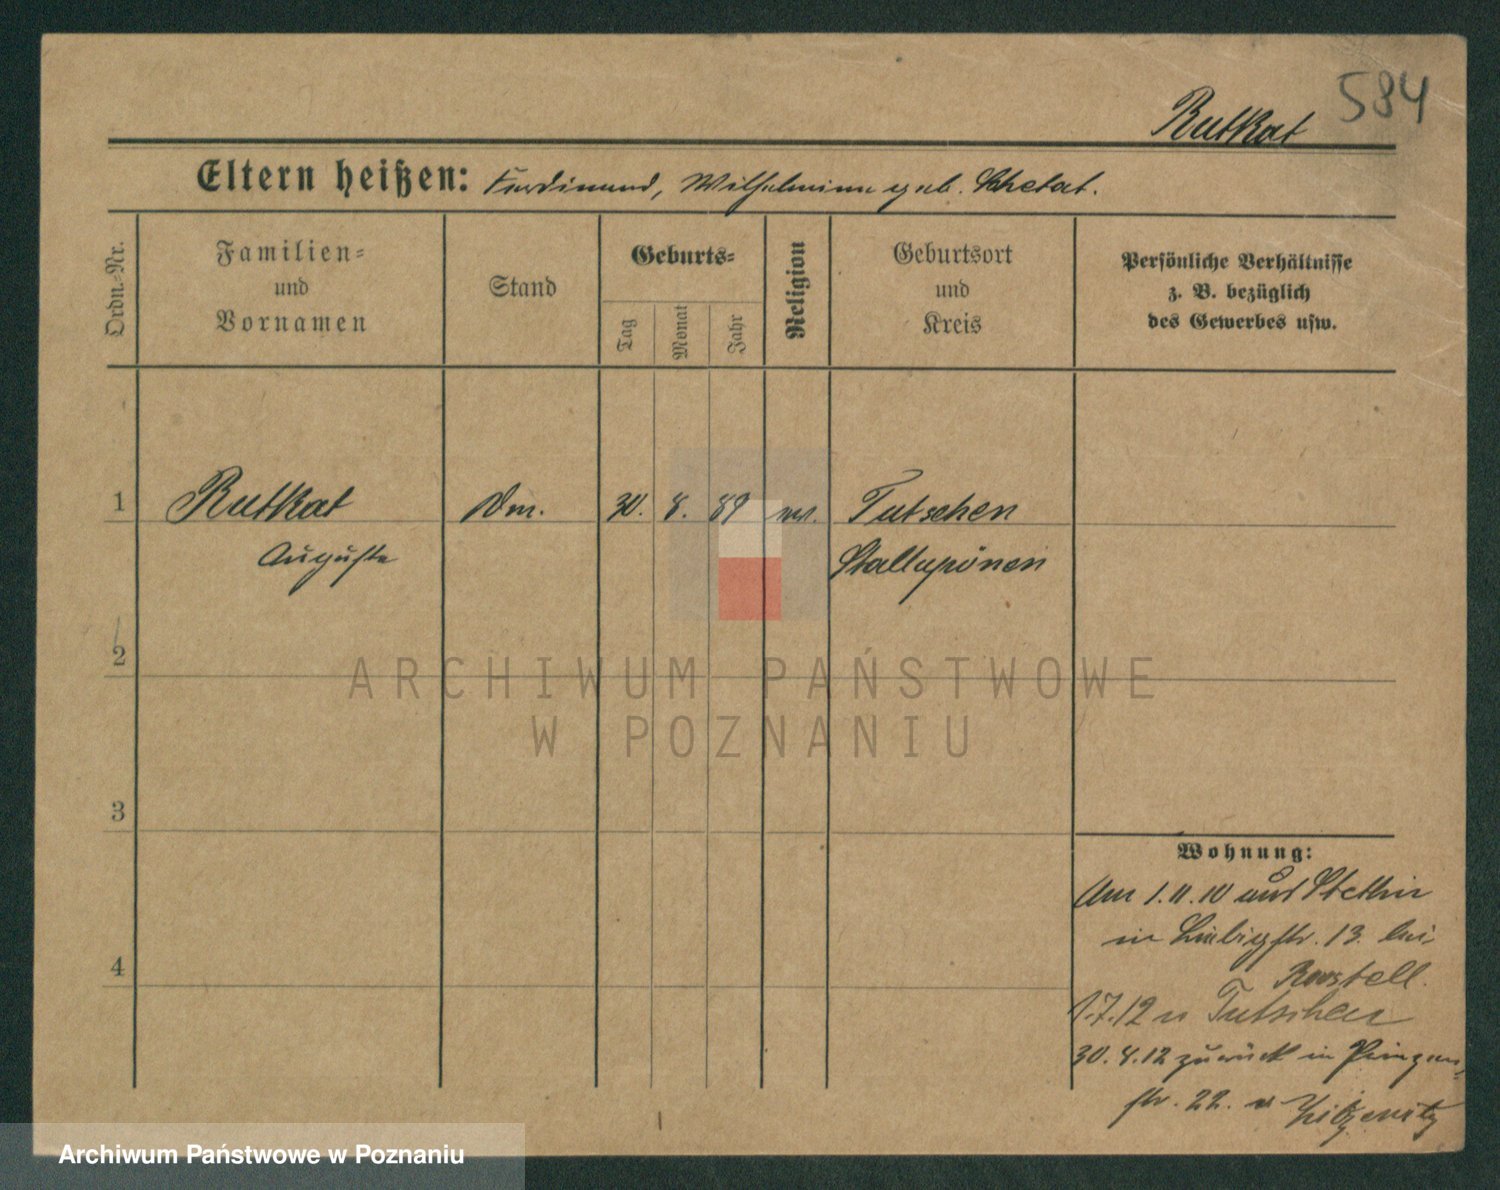 584
Rutkat
Eltern heißen: Ferdinand, Wilhelmine geb. Schetat.
Ordn.-Nr.
Familien-
und
Vornamen
Stand
Geburts-
Tag
Monat
Jahr
Religion
Geburtsort
und
Kreis
Persönliche Verhältnisse
z. B. bezüglich
des Gewerbes usw.
1 Rutkat Dm. 30. 8. 89 ev. Tutschen
Auguste Stallupönen
2
3
4
Wohnung:
Am 1.11.10 aus Stettin
in Liebigstr. 13. bei
1.7.12 n Tutschen
30. 8. 12 zurück in Prinzen
str. 22. v Zitzewitz
ARCHIWUM PAŃSTWOWE
W POZNANIU
Archiwum Państwowe w Poznaniu